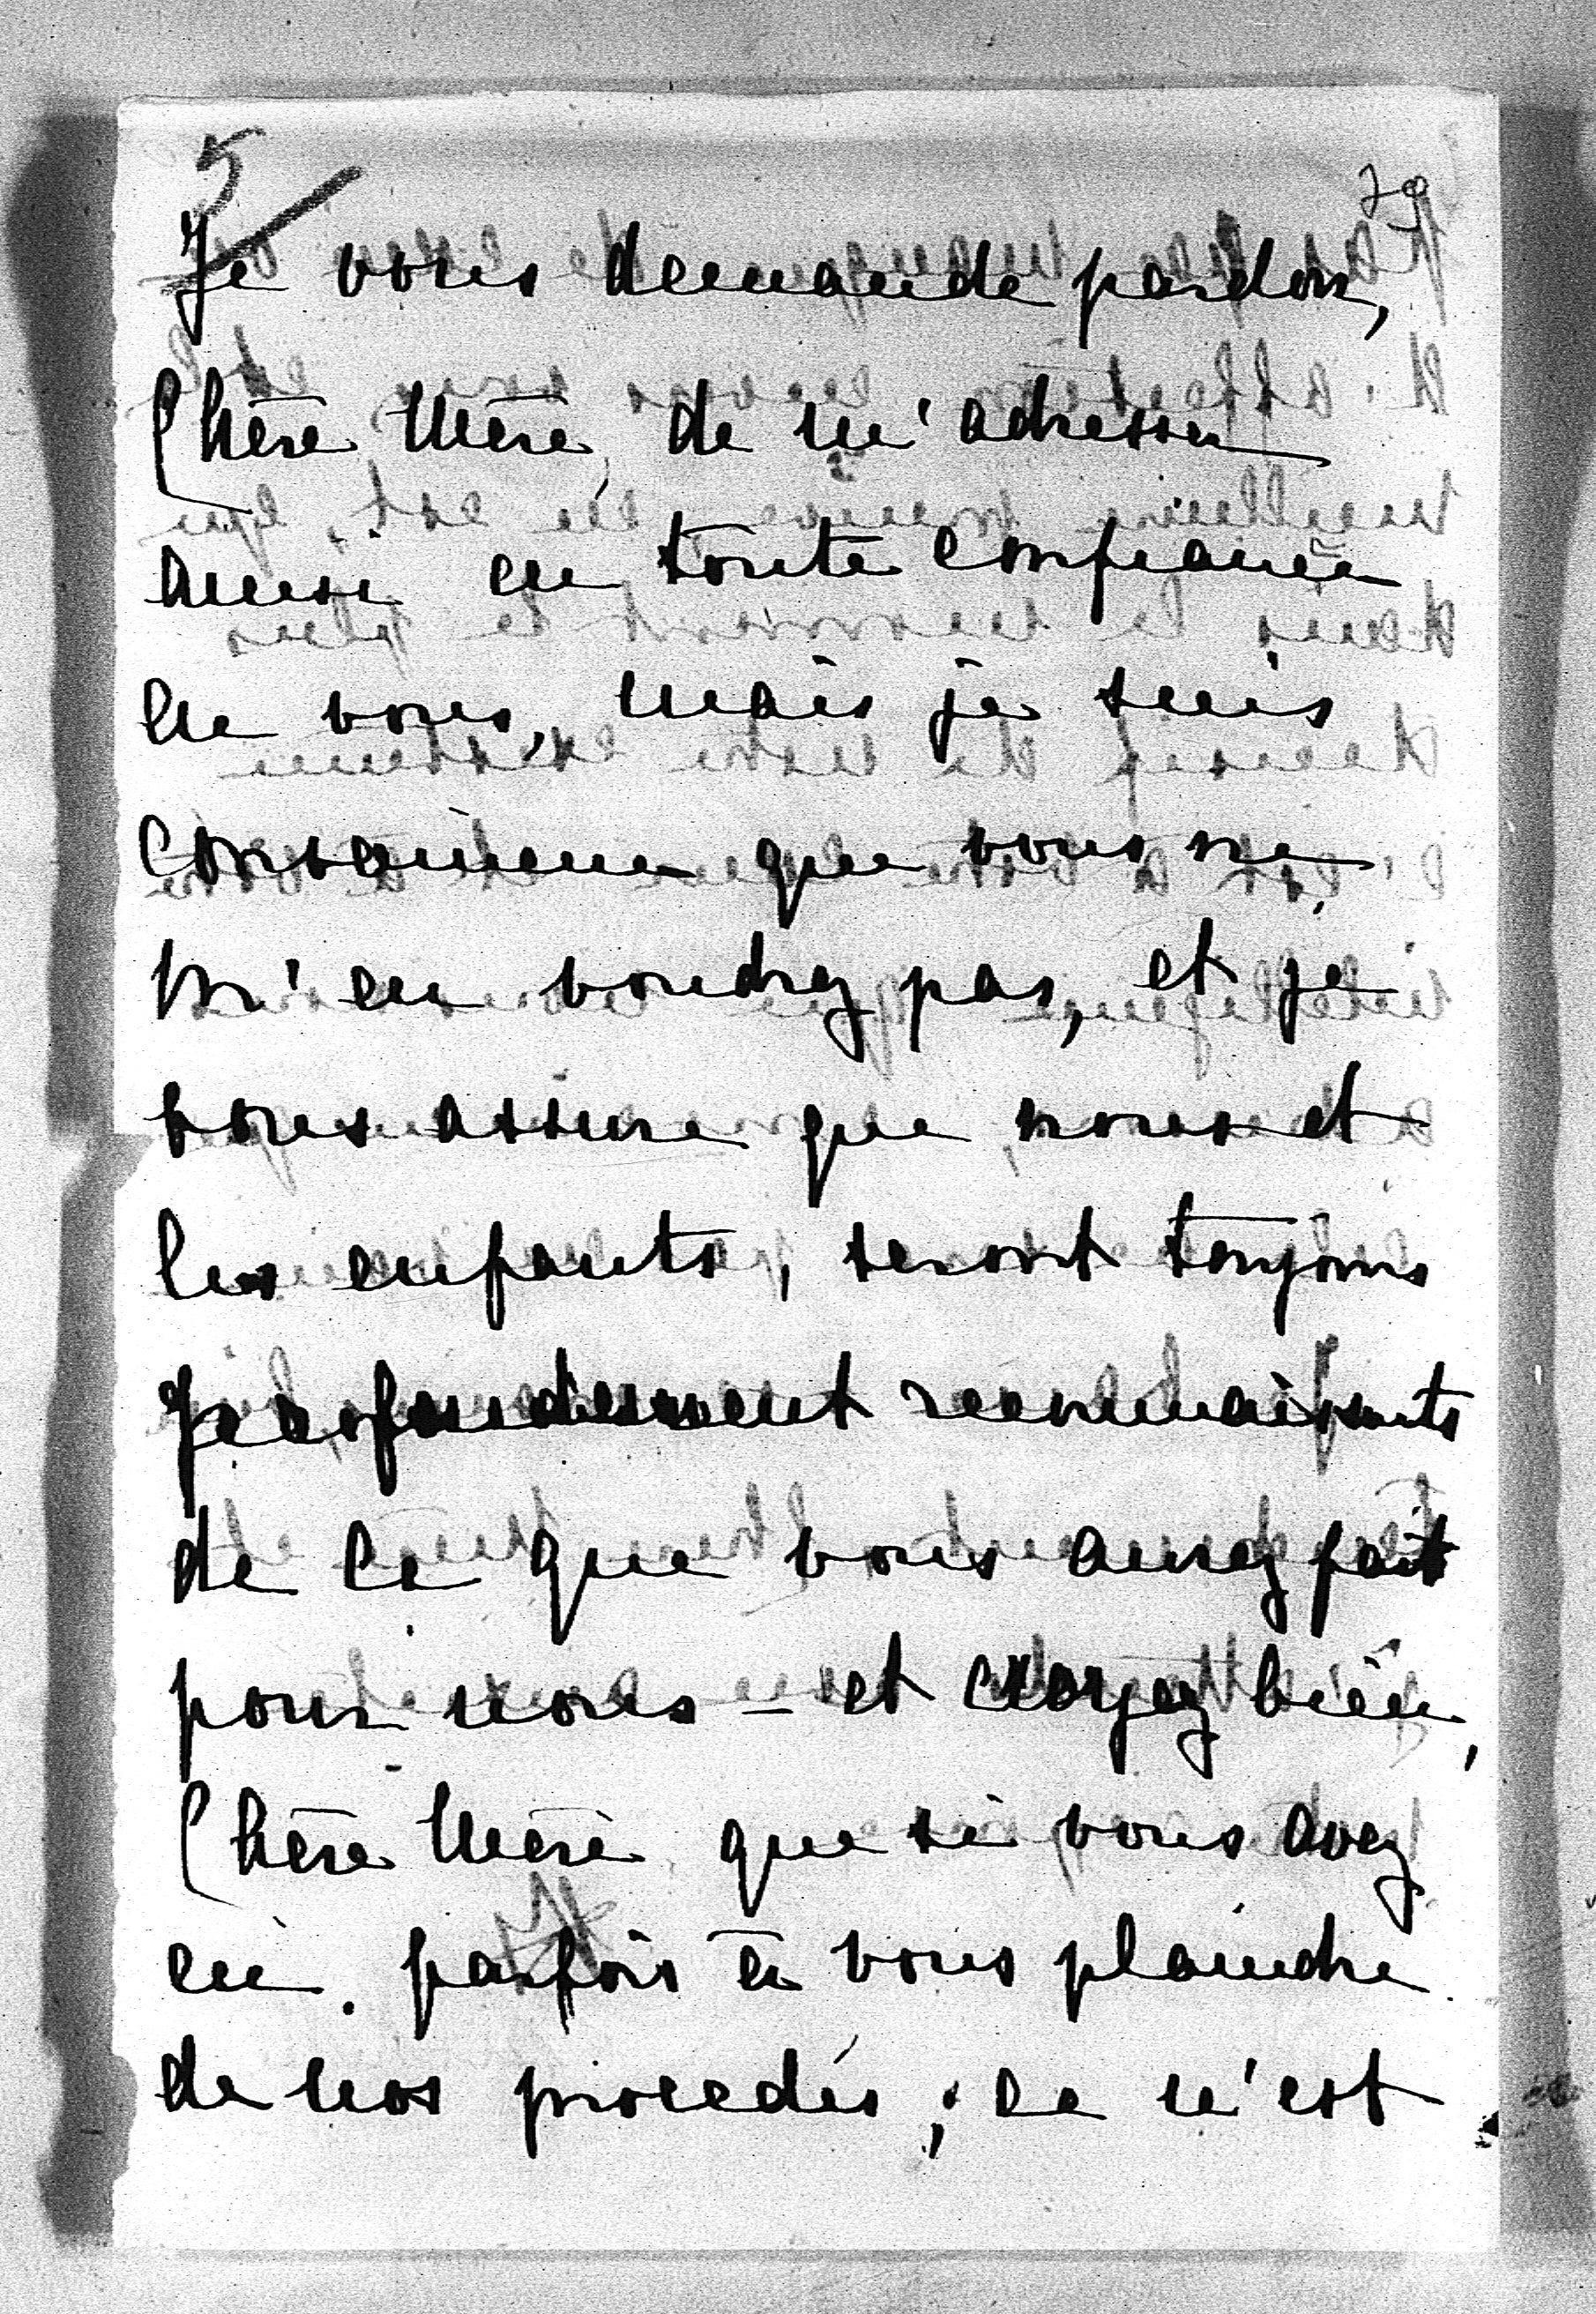 5
70
Je vous demande pardon,
Chère Mère, de m'adresser
ainsi en toute confiance
en vous, mais je suis
convaincue que vous ne
m'en voudrez pas, et je
vous assure que nous et
les enfants, seront toujours
profondément reconnaissants
de ce que vous aurez fait
pour nous - et croyez bien,
Chère Mère que si vous avez
eu parfois à vous plaindre
de nos procédés, ce n'est